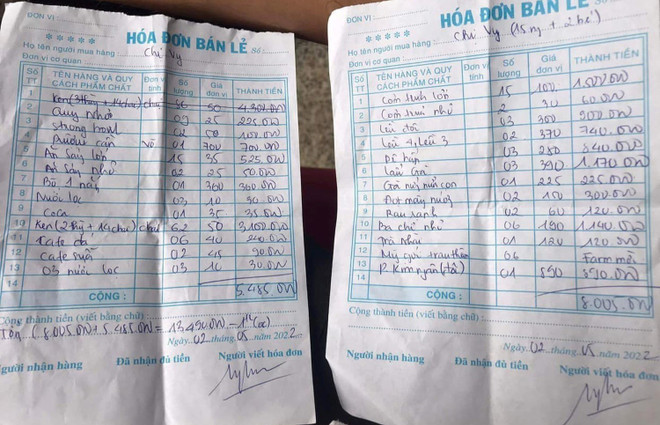 ĐƠN VỊ :
HÓA ĐƠN BÁN LẺ Số :
Họ tên người mua hàng : Chị Vy
Đơn vị cơ quan :
Số TT TÊN HÀNG VÀ QUY CÁCH PHẨM CHẤT Đơn vị tính Số lượng Giá đơn vị THÀNH TIỀN
1 50
2 09 25 225.000
3 Strong bow 02 50 100.000
4 Rượu cần 01 700 700.000
5 Ăn sáng lớn 15 35 525.000
6 Ăn sáng nhỏ 02 25 50.000
7 01 360 360.000
8 Nước lọc 03 10 30.000
9 Coca 01 35 35.000
10 Ken 62 50 3.100.000
11 Cafe đá 06 40 240.000
12 Cafe sữa 02 45 90.000
13 03 nước lọc 03 10 30.000
14
CỘNG : 5.485.000
Cộng thành tiền (viết bằng chữ) :
8.005.000 + 5.485.000 = 13.490.000
Ngày 02 tháng 05 năm 2022
Người nhận hàng Đã nhận đủ tiền Người viết hóa đơn
ĐƠN VỊ :
HÓA ĐƠN BÁN LẺ Số :
Họ tên người mua hàng : Chị Vy (15 ng + 2 bé)
Đơn vị cơ quan :
Số TT TÊN HÀNG VÀ QUY CÁCH PHẨM CHẤT Đơn vị tính Số lượng Giá đơn vị THÀNH TIỀN
1 15 100 1.500.000
2 2 30 60.000
3 Lều đôi 03 300 900.000
4 Lều 02 370 740.000
5 03 280 840.000
6 Lẩu Gà 03 390 1.170.000
7 01 225 225.000
8 02 150 300.000
9 Rau xanh 02 60 120.000
10 Ba chỉ nhỏ 06 190 1.140.000
11 01 120 120.000
12 06 Farm mời
13 P. Kim ngân 01 890 890.000
14
CỘNG : 8.005.000
Cộng thành tiền (viết bằng chữ) :
Ngày 02 tháng 05 năm 2022
Người nhận hàng Đã nhận đủ tiền Người viết hóa đơn